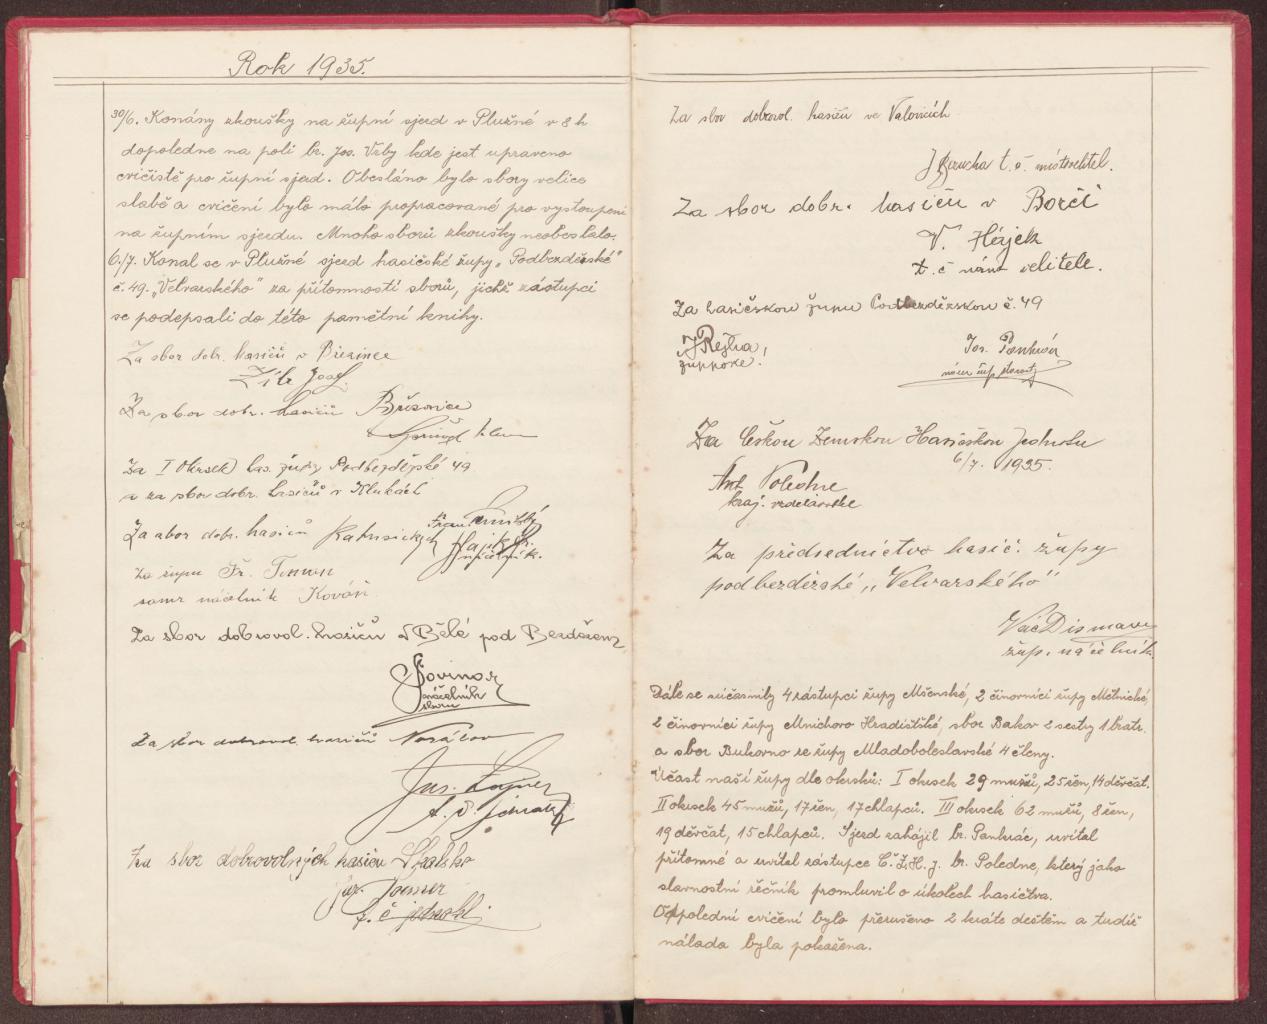 Rok 1935.
30/6. Konány zkoušky na župní sjezd v Plužné v 8 h
dopoledne na poli br. Jos. Vrby kde jest upraveno
cvičiště pro župní sjezd. Obesláno bylo sbory velice
slabě a cvičení bylo málo propracované pro vystoupení
na župním sjezdu. Mnoho sborů zkoušky neobeslalo.
6./7. Konal se v Plužné sjezd hasičské župy „Podbezděské"
č. 49. „Velvarského" za přítomnosti sborů, jichž zástupci
se podepsali do této pamětní knihy.
Za sbor dobr. hasičů v Březince
Zíb Josef
Za sbor dobr. hasičů Březovice
Za I Okrsek has. župy Podbezděské 49
a za sbor dobr. hasičů v Klukách
Fran.
Za sbor dobr. hasičů Katusických Hajek
Za župu Fr. Toman
náčelník Kovář
Za sbor dobrovol. hasičů v Bělé pod Bezdězem
náčelník
sboru
Za sbor dobrovol. hasičů Nosálov
Jos.
t. č. jednatel
Za sbor dobrovolných hasičů Skalsko
t. č. jednatel
Za sbor dobrovol. hasičů ve Valovicích
J. Berucha t. č. místovelitel.
Za sbor dobr. hasičů v Borči
V. Hájek
t. č. nám. velitele.
Za hasičskou župu Podbezdězskou č. 49
J Rejha Jos. Pankrác
náměs. žup. starosty
Za Českou Zemskou Hasičskou Jednotu
6/7. 1935.
Ant. Poledne
kraj. vzdělavatel
Za předsednictvo hasič. župy
podbezděské „Velvarského"
Vác Dismany
žup. náčelník.
Dále se súčasnily 4 zástupci župy Mšenské, 2 činovníci župy Mělnické,
2 činovníci župy Mnichovo Hradištské, sbor Bakov 2 sestry 1 bratr.
a sbor Bukovno ze župy Mladoboleslavské 4 členy.
Účast naší župy dle okrsků: I okrsek 29 mužů, 25 žen, 14 děvčat.
II okrsek 45 mužů, 17 žen, 17 chlapců. III okrsek 62 mužů, 8 žen,
19 děvčat, 15 chlapců. Sjezd zahájil br. Pankrác, uvítal
přítomné a uvítal zástupce Č.Z.H.J. br. Poledne, který jako
slavnostní řečník promluvil o úkolech hasičstva.
Odpolední cvičení bylo přerušeno 2 kráte deštěm a tudíž
nálada byla pokažena.